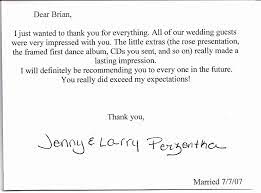 Dear Brian,
I just wanted to thank you for everything. All of our wedding guests
were very impressed with you. The little extras (the rose presentation,
the framed first dance album, CDs you sent, and so on) really made a
lasting impression.
I will definitely be recommending you to every one in the future.
You really did exceed my expectations!
Thank you,
Jenny & Larry
Married 7/7/07